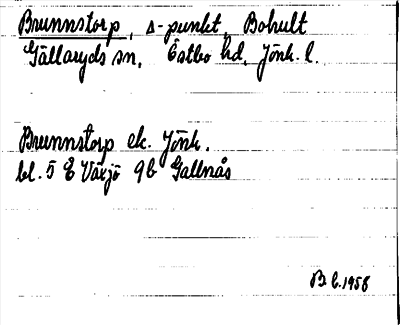 Brunnstorp, Δ-punkt, Bohult
Gällaryds sn, Östbo hd, Jönk. l.
Brunnstorp ek. Jönk.
bl. 5 E Växjö 9b Gallnås
B b. 1958